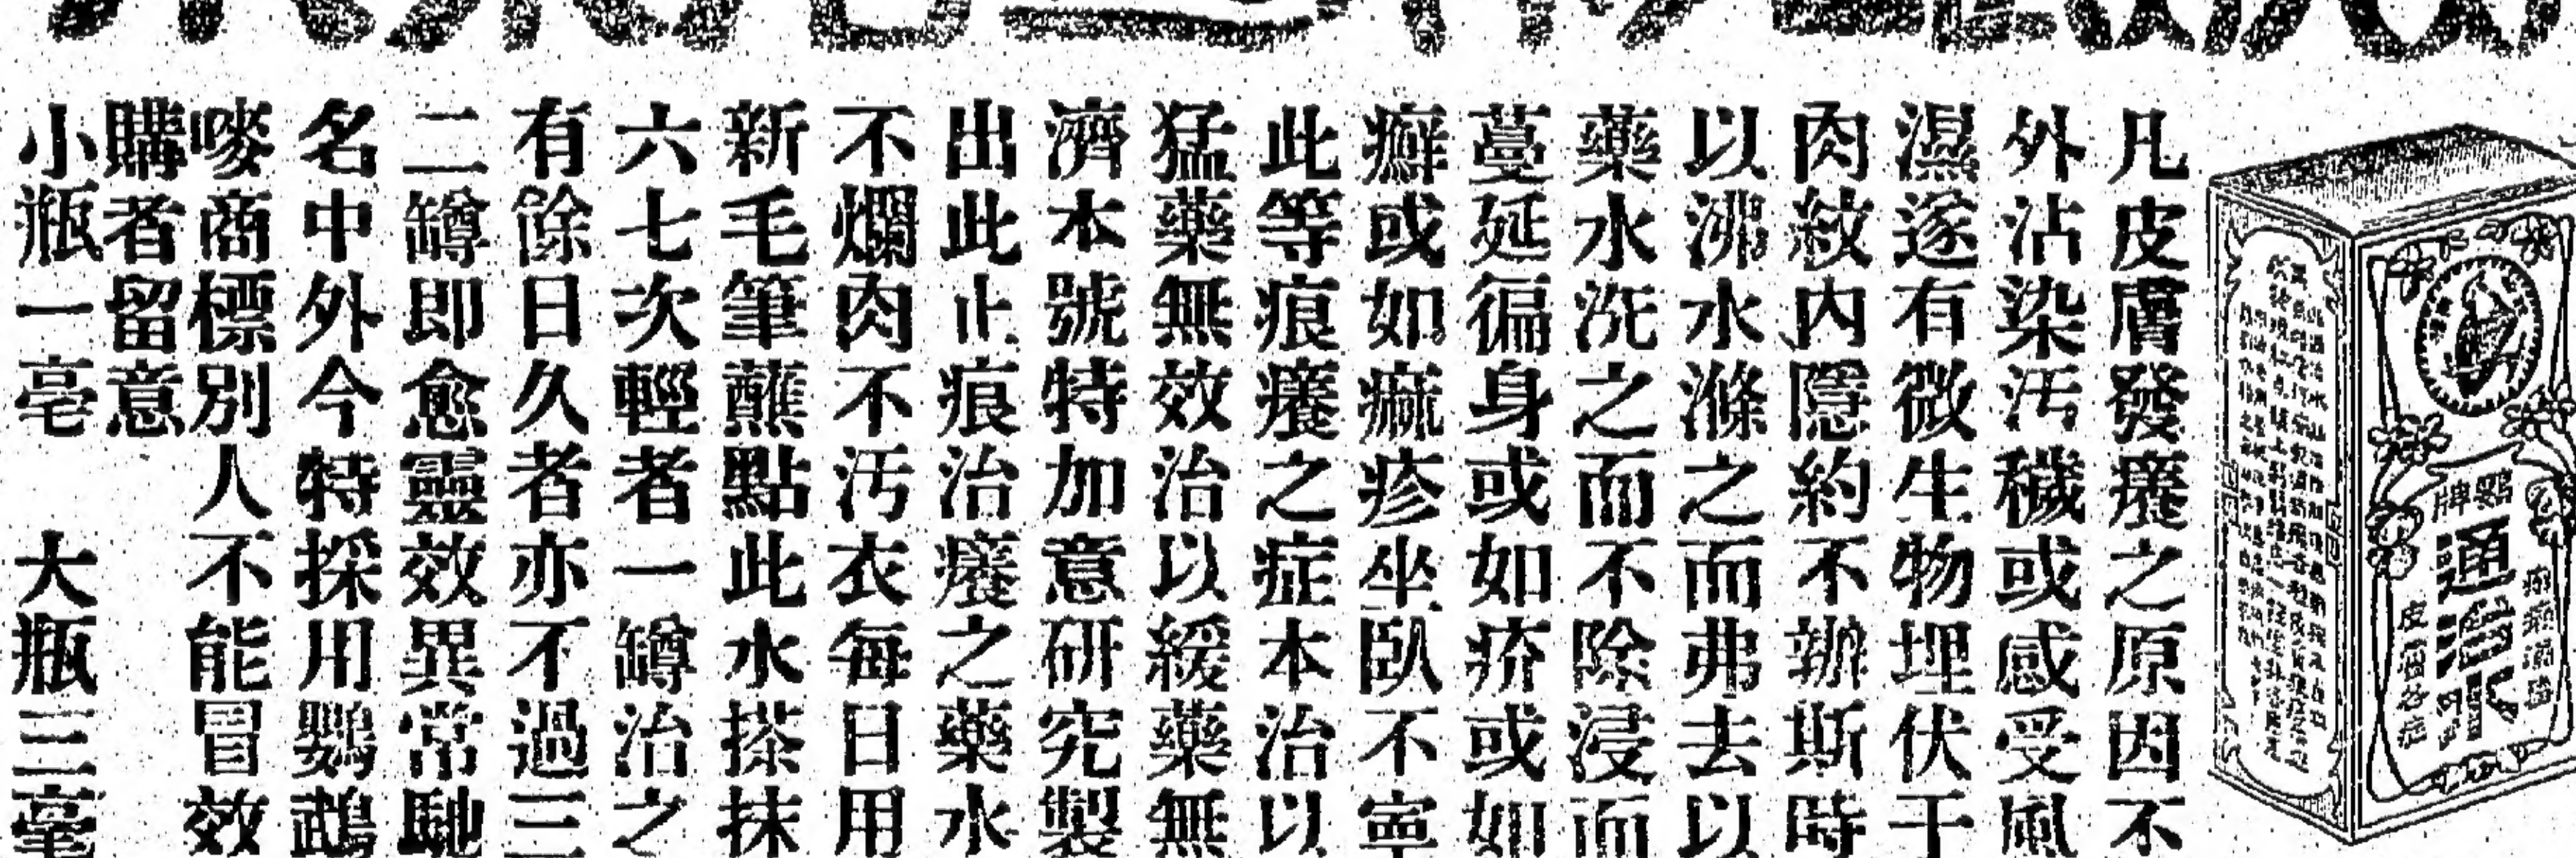 凡皮膚發癢之原因不
外沾染汚穢或感受風
濕遂有微生物埋伏于
肉紋內隱約不辦斯時
以沸水滌之而弗去以
藥水洗之而不除浸而
蔓延徧身或如疥或如
癬或如痲疹坐臥不寧
此等痕癢之症本治以
猛藥無效治以緩藥無
濟本號特加意研究製
出此止痕治癢之藥水
不爛肉不汚衣每日用
新毛筆蘸點此水搽抹
六七次輕者一罇治之
有餘日久者亦不過三
二罇即愈靈效異常馳
名中外今特採用鸚鵡
嘜商標別人不能冒效
購者留意
小瓶一毫 大瓶三毫